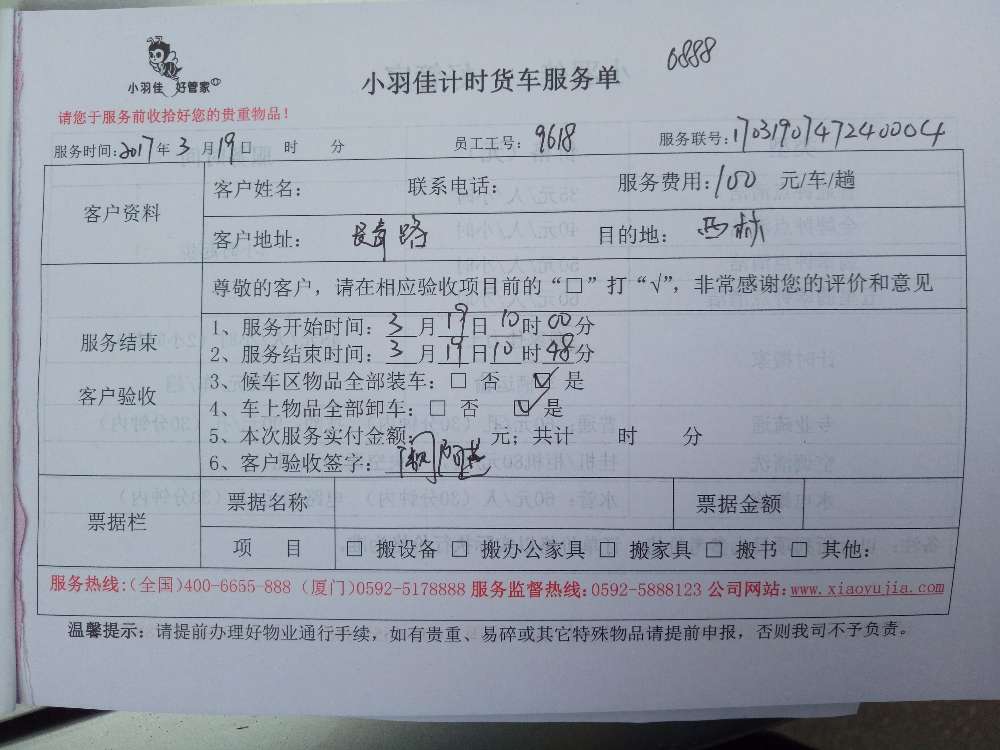 0888
小羽佳 好管家
小羽佳计时货车服务单
请您于服务前收拾好您的贵重物品！
服务时间：2017年 3 月 19 日 时 分 员工工号：9618 服务联号：17031907472400004
客户资料
客户姓名： 联系电话： 服务费用：100 元/车/趟
客户地址： 长青路 目的地： 西林
服务结束
客户验收
尊敬的客户，请在相应验收项目前的“□”打“√”，非常感谢您的评价和意见
1、服务开始时间：3 月 19 日 10 时 00 分
2、服务结束时间：3 月 19 日 10 时 48 分
3、候车区物品全部装车：□ 否 ☑ 是
4、车上物品全部卸车：□ 否 ☑ 是
5、本次服务实付金额： 元；共计 时 分
6、客户验收签字：
票据栏
票据名称 票据金额
项 目 □ 搬设备 □ 搬办公家具 □ 搬家具 □ 搬书 □ 其他：
服务热线：（全国）400-6655-888（厦门）0592-5178888 服务监督热线：0592-5888123 公司网站：www.xiaoyujia.com
温馨提示：请提前办理好物业通行手续，如有贵重、易碎或其它特殊物品请提前申报，否则我司不予负责。